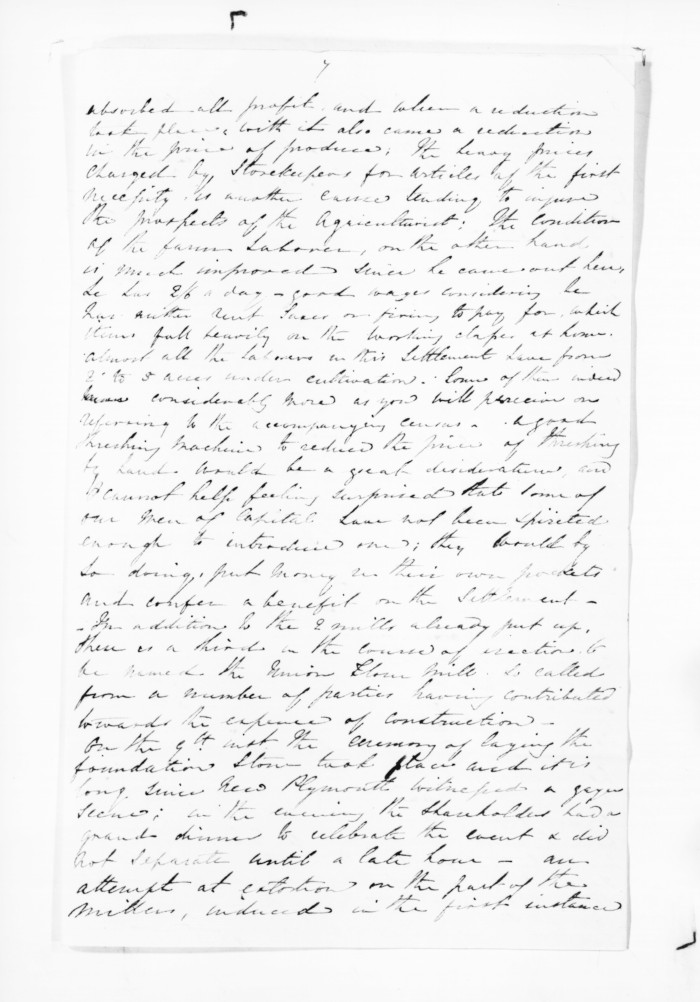 7
absorbed all profit, and when a reduction
took place, with it also came a reduction
in the price of produce; The heavy prices
charged by Storekeepers for articles of the first
necessity is another cause tending to injure
the prospects of the Agriculturist; The Condition
of the farm Laborer, on the other hand
is much improved since he came out here,
he has 2/6 a day - good wages considering he
has neither rent taxes or firing to pay for, which
items fall heavily on the working classes at home.
almost all the Laborers in this Settlement have from
2 to 5 acres under cultivation. Some of them indeed
have considerably more as you will perceive on
referring to the accompanying census - a good
threshing machine to reduce the price of threshing
by hand would be a great desideratum, and
I cannot help feeling surprised that some of
our Men of Capital have not been spirited
enough to introduce one; they would by
so doing, put money in their own pockets
and confer a benefit on the Settlement -
- In addition to the 2 mills already put up,
there is a third in the course of erection to
be named the Union Flour Mill. So called
from a number of parties having contributed
towards the expence of construction -
On the 9th inst the ceremony of laying the
foundation Stone took place and it is
long since New Plymouth witnessed a gayer
scene; in the evening the Shareholders had a
grand dinner to celebrate the event & did
not separate until a late hour - an
attempt at extortion on the part of the
Millers, induced in the first instance